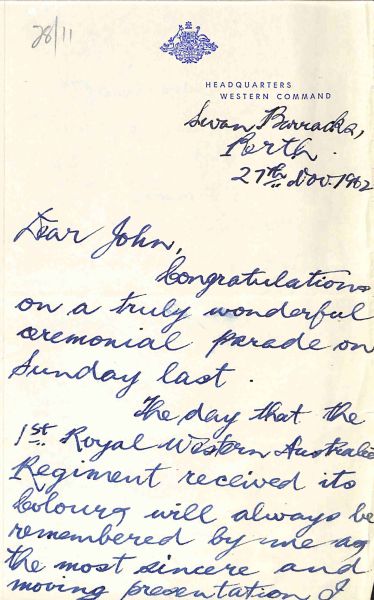 28/11
HEADQUARTERS
WESTERN COMMAND
Swan Barracks,
Perth.
27th Nov. 1962
Dear John,
Congratulations
on a truly wonderful
ceremonial parade on
Sunday last.
The day that the
1st Royal Western Australia
Regiment received its
Colours will always be
remembered by me as
the most sincere and
moving presentation I